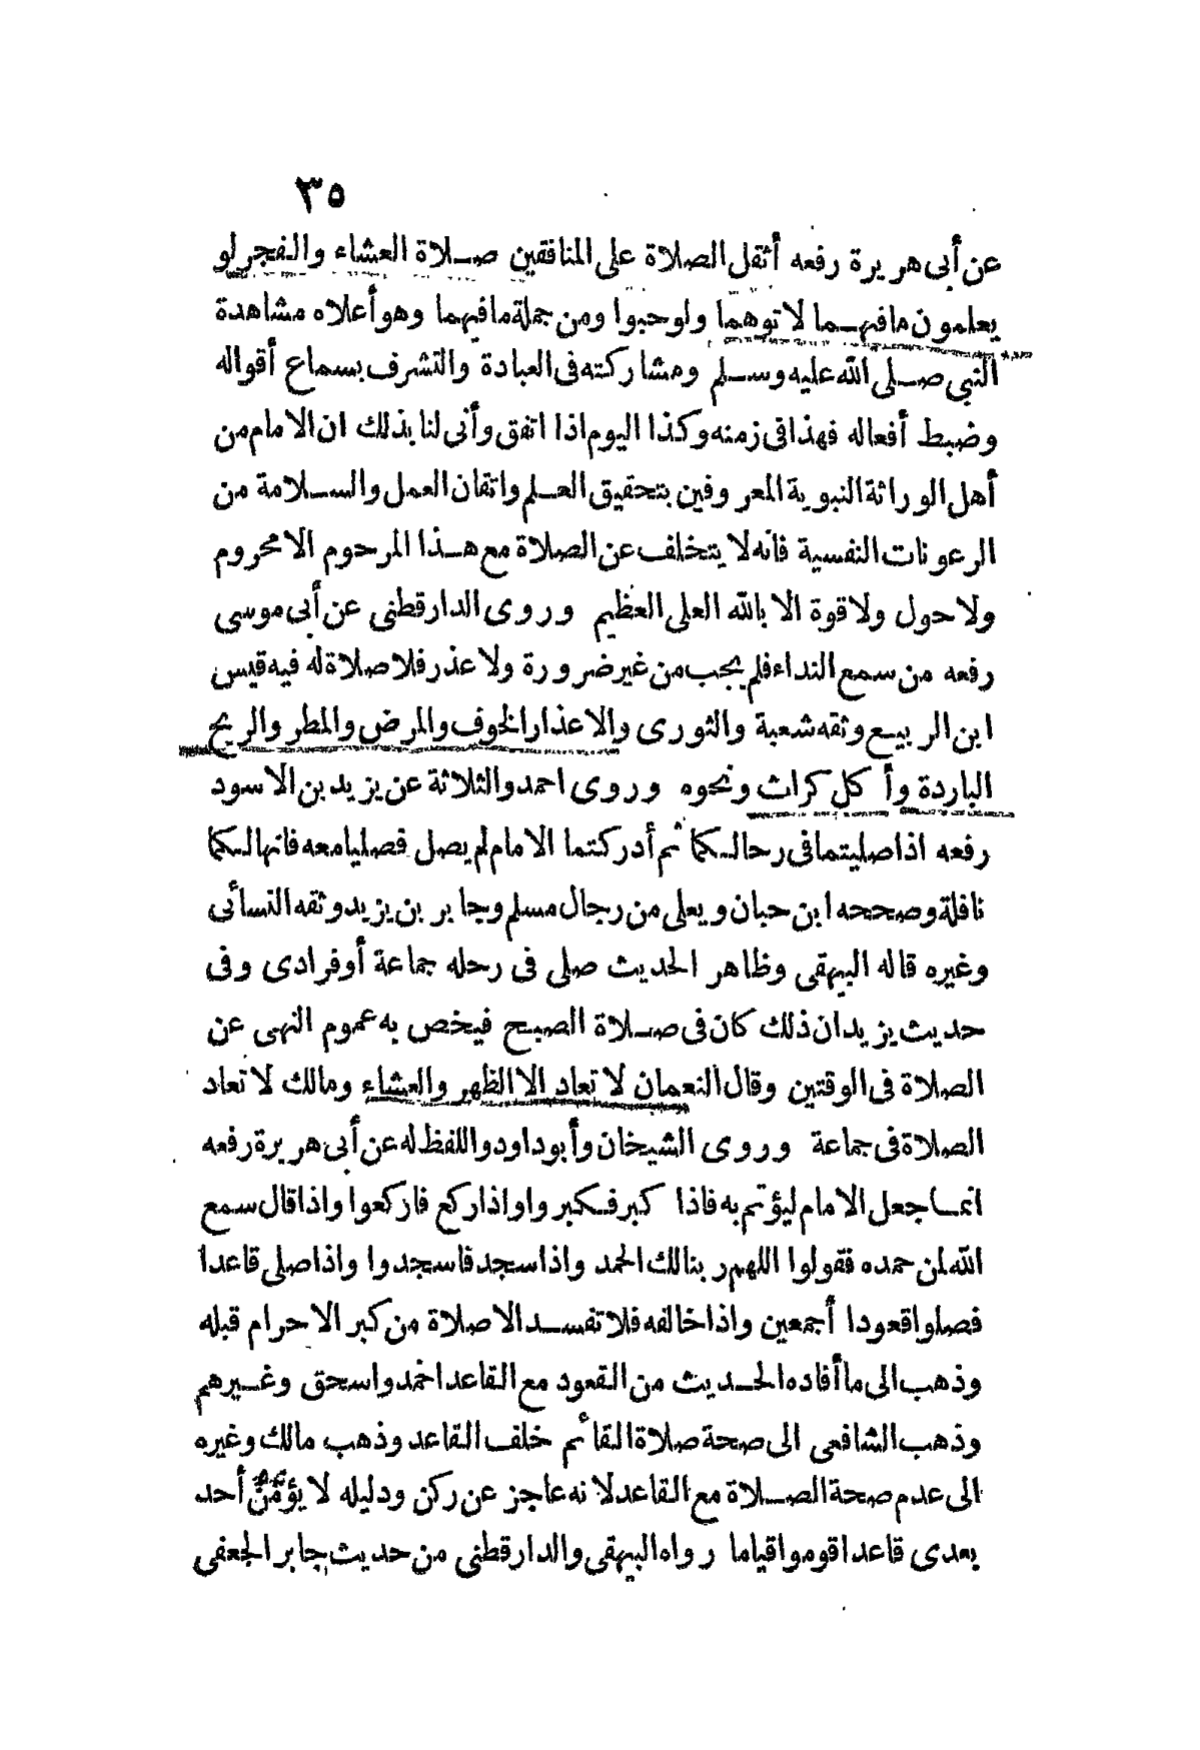 ٣٥
عن أبى هريرة رفعه أثقل الصلاة على المنافقين صلاة العشاء والفجر لو
يعلمون ما فيهما لاتوهما ولو حبوا ومن جملة ما فيهما وهو أعلاه مشاهدة
النبى صلى الله عليه وسلم ومشاركته فى العبادة والتشرف بسماع أقواله
وضبط أفعاله فهذا فى زمنه وكذا اليوم اذا اتفق وأنى لنا بذلك ان الامام من
أهل الوراثة النبوية المعروفين بتحقيق العلم واتقان العمل والسلامة من
الرعونات النفسية فانه لا يتخلف عن الصلاة مع هذا المرحوم الا محروم
ولا حول ولا قوة الا بالله العلى العظيم وروى الدارقطنى عن أبى موسى
رفعه من سمع النداء فلم يجب من غير ضرورة ولا عذر فلا صلاة له فيه قيس
ابن الربيع وثقه شعبة والثورى والاعذار الخوف والمرض والمطر والريح
الباردة وأكل كراث ونحوه وروى احمد والثلاثة عن يزيد بن الاسود
رفعه اذا صليتما فى رحالكما ثم أدركتما الامام لم يصل فصليا معه فانها لكما
نافلة وصححه ابن حبان ويعلى من رجال مسلم وجابر بن يزيد وثقه النسائى
وغيره قاله البيهقى وظاهر الحديث صلى فى رحله جماعة أو فرادى وفى
حديث يزيد ان ذلك كان فى صلاة الصبح فيخص به عموم النهى عن
الصلاة فى الوقتين وقال النعمان لا تعاد الا الظهر والعشاء ومالك لا تعاد
الصلاة فى جماعة وروى الشيخان وأبو داود واللفظ له عن أبى هريرة رفعه
انما جعل الامام ليؤتم به فاذا كبر فكبروا واذا ركع فاركعوا واذا قال سمع
الله لمن حمده فقولوا اللهم ربنا لك الحمد واذا سجد فاسجدوا واذا صلى قاعدا
فصلوا قعودا أجمعين واذا خالفه فلا تفسد الا صلاة من كبر الاحرام قبله
وذهب الى ما أفاده الحديث من القعود مع القاعد احمد واسحق وغيرهم
وذهب الشافعى الى صحة صلاة القائم خلف القاعد وذهب مالك وغيره
الى عدم صحة الصلاة مع القاعد لانه عاجز عن ركن ودليله لا يؤمنّ أحد
بعدى قاعدا قوموا قياما رواه البيهقى والدارقطنى من حديث جابر الجعفى